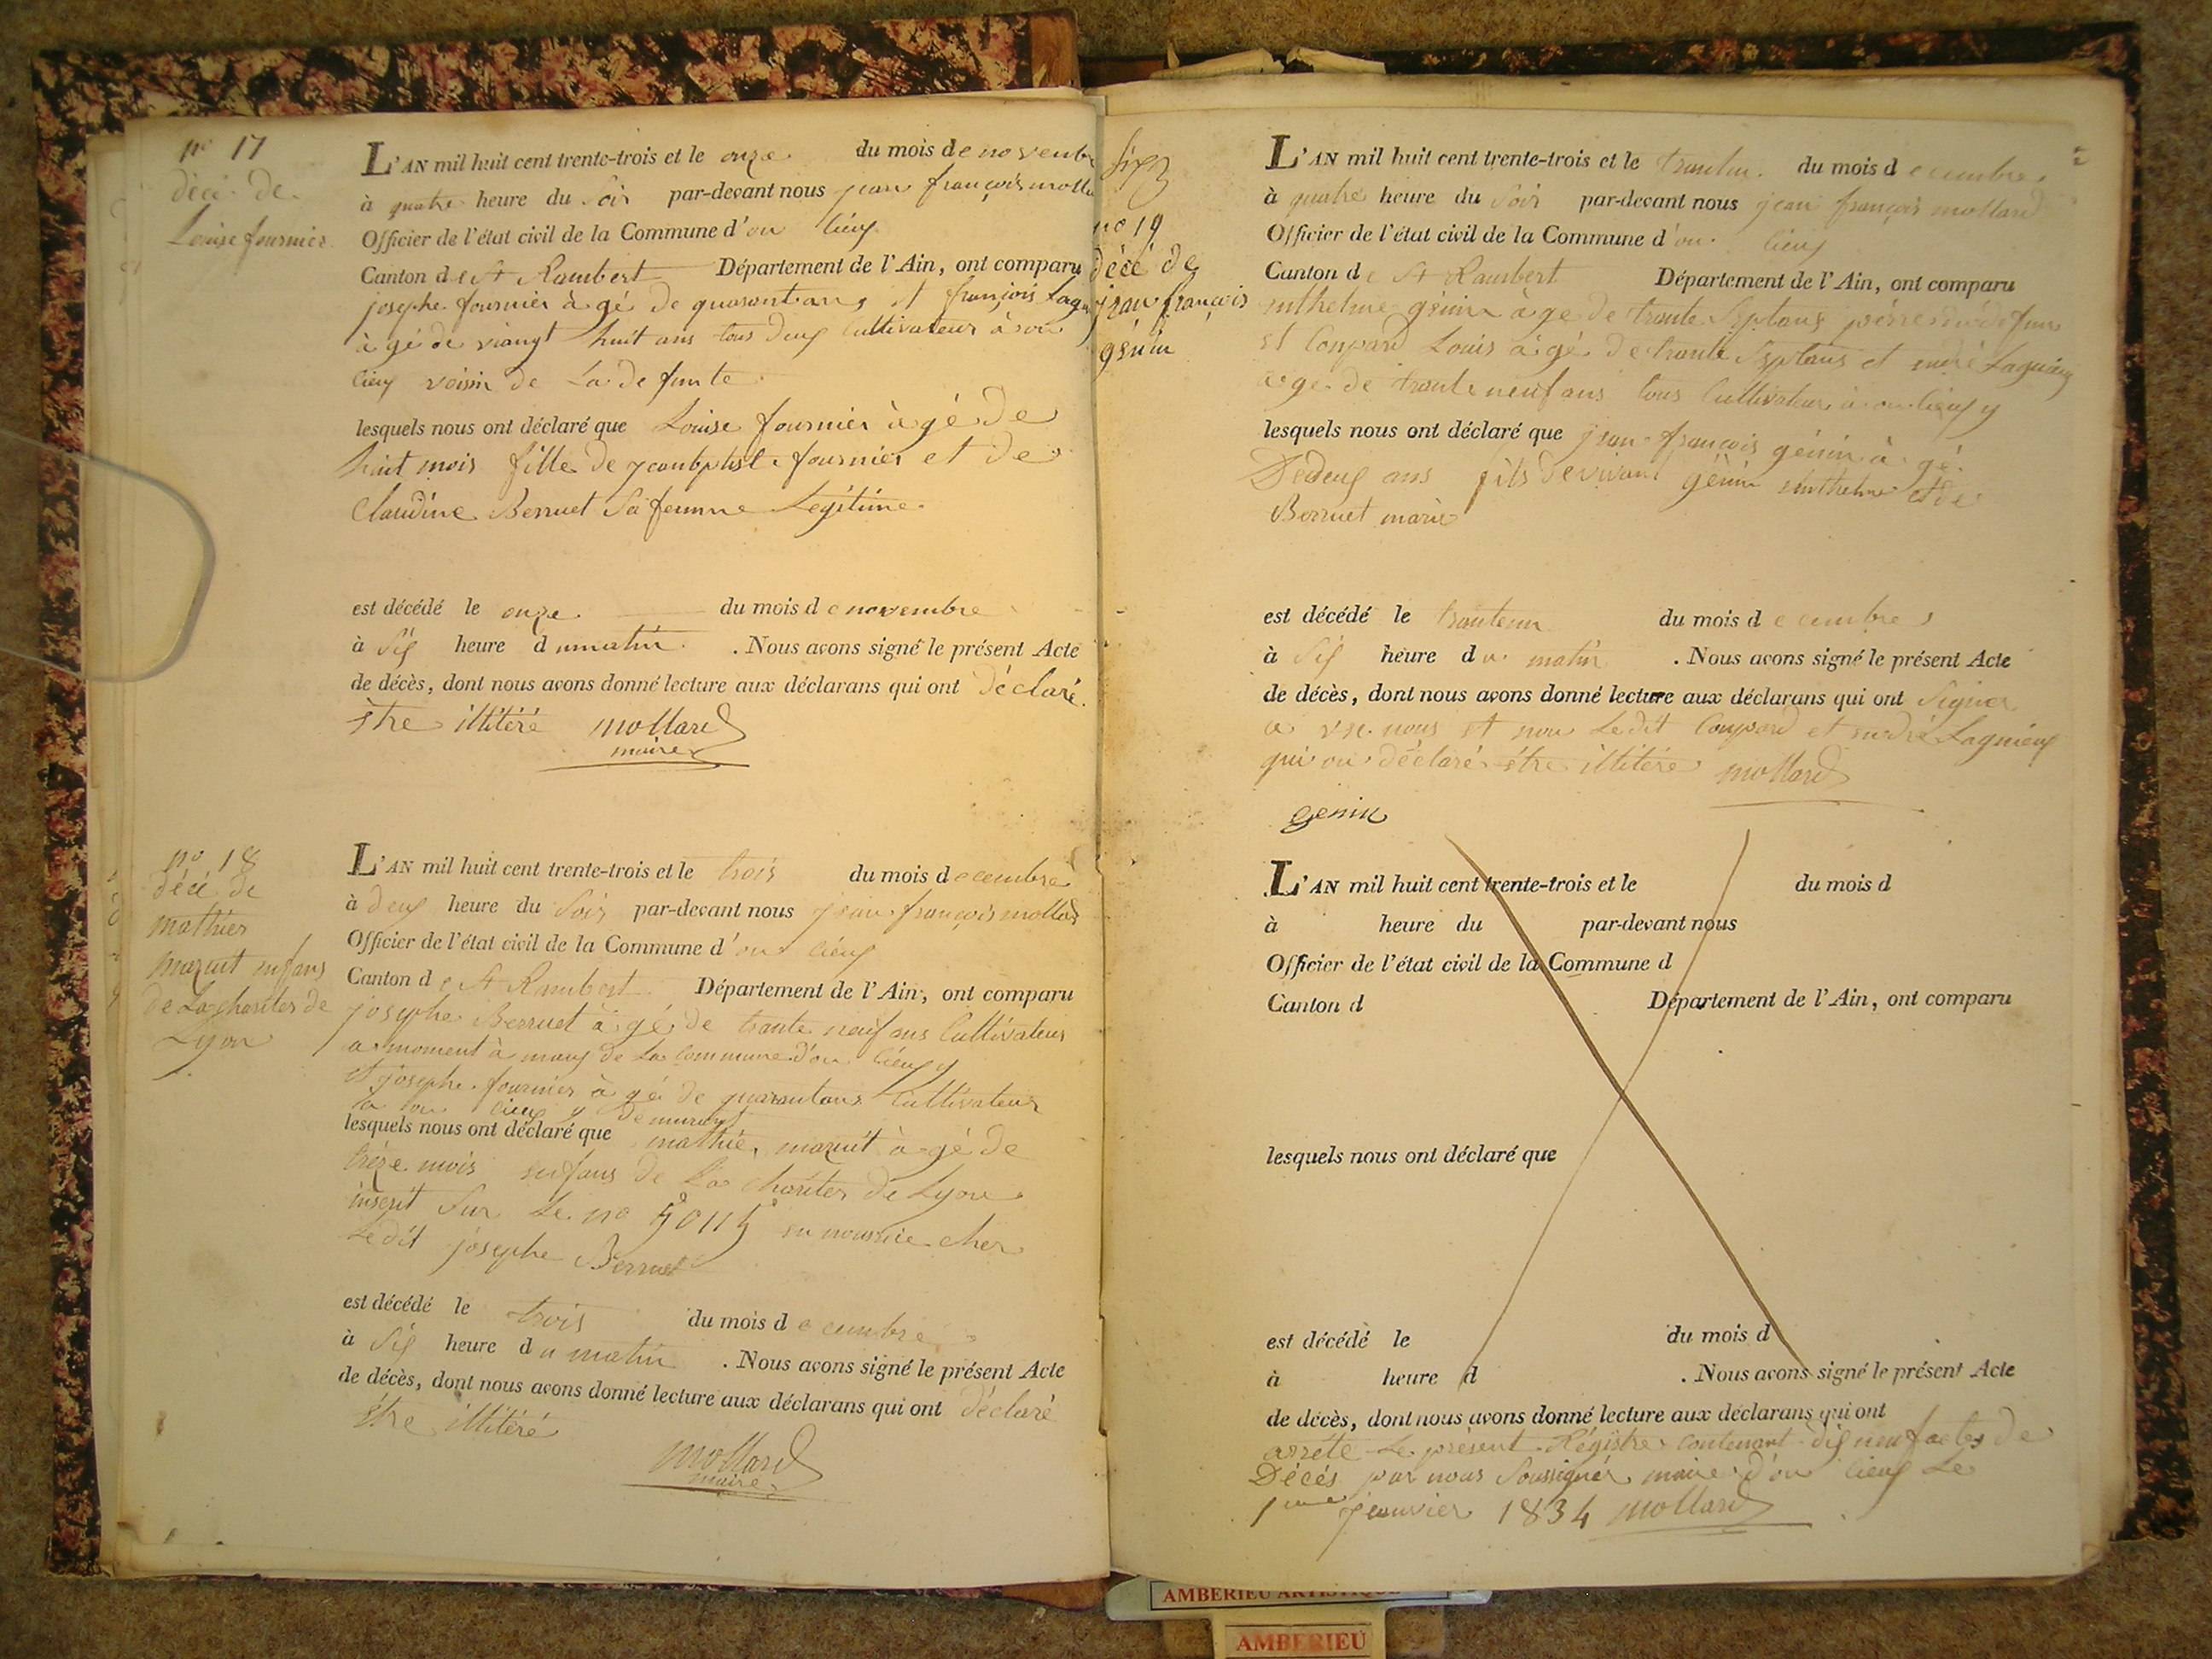 no 17
décé de
Louise fournier
L'AN mil huit cent trente-trois et le onze du mois de novembr
à quatre heure du Soir par-devant nous jean françois molla
Officier de l'état civil de la Commune d'ou lieux
Canton de St Rambert Département de l'Ain, ont comparu
josephe fournier à gé de quarant ans et françois Lagn
à gé de viangt huit ans tous deux Cultivateur à ou
lieux voisin de La defunte
lesquels nous ont déclaré que Louise fournier à gé de
huit mois fille de jeanbptist fournier et de
Claudine Berruet Sa femme Legitime
est décédé le onze du mois de novembre
à Six heure du matin . Nous avons signé le présent Acte
de décès, dont nous avons donné lecture aux déclarans qui ont déclaré
être illitéré mollard
maire
no 18
décé de
mathier
mazuit enfans
de La charites de
Lyon
L'AN mil huit cent trente-trois et le trois du mois de cembre
à deux heure du Soir par-devant nous jean françois mollard
Officier de l'état civil de la Commune d'ou lieux
Canton de St Rambert Département de l'Ain, ont comparu
josephe Berruet à gé de trante neuf ans Cultivateur
a moment à de La commune d'ou lieux
et josephe fournier à gé de quarantans Cultivateur
a ou lieux y demurant
lesquels nous ont déclaré que mathié mazuit à gé de
trèze mois enfans de La charites de Lyon
inscrit Sur Le no en nourrice cher
Ledit josephe Berruet
est décédé le trois du mois de cembre
à Six heure du matin . Nous avons signé le présent Acte
de décès, dont nous avons donné lecture aux déclarans qui ont déclaré
être illitéré
mollard
maire
no 19
décé de
jean françois
génin
L'AN mil huit cent trente-trois et le trantun du mois de cembre
à quatre heure du Soir par-devant nous jean françois mollard
Officier de l'état civil de la Commune d'ou lieux
Canton de St Rambert Département de l'Ain, ont comparu
anthelme génin à gé de trante Septans père du defun
et Louis à gé de trante Septans et andré Lagnieux
a gé de trante neuf ans tous Cultivateur à ou lieux y
lesquels nous ont déclaré que jean françois génin à gé
De deux ans fils de vivant génin anthelme et de
Berruet marie
est décédé le trantun du mois de cembre
à Six heure du matin . Nous avons signé le présent Acte
de décès, dont nous avons donné lecture aux déclarans qui ont Signer
a vec nous et non Ledit et andré Lagnieux
qui on déclaré être illitéré mollard
genin
L'AN mil huit cent trente-trois et le du mois d
à heure du par-devant nous
Officier de l'état civil de la Commune d
Canton d Département de l'Ain, ont comparu
lesquels nous ont déclaré que
est décédé le du mois d
à heure d . Nous avons signé le présent Acte
de décès, dont nous avons donné lecture aux déclarans qui ont
arrété Le présent Régistre contenant dix neuf actes de
Décés par nous Soussigner maire d'ou lieux Le
1er janvier 1834 mollard
AMBERIEU
AMBERIEU